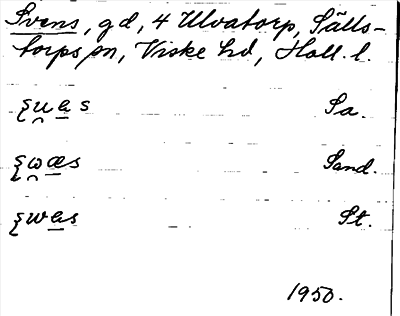 Svens, gd, 4 Ulvatorp, Sälls-
torps sn, Viske hd, Hall. l.
ʂu̯a̲s Sa.
ʂω̯æ̲s Sand.
ʂwa̲s St.
1950.